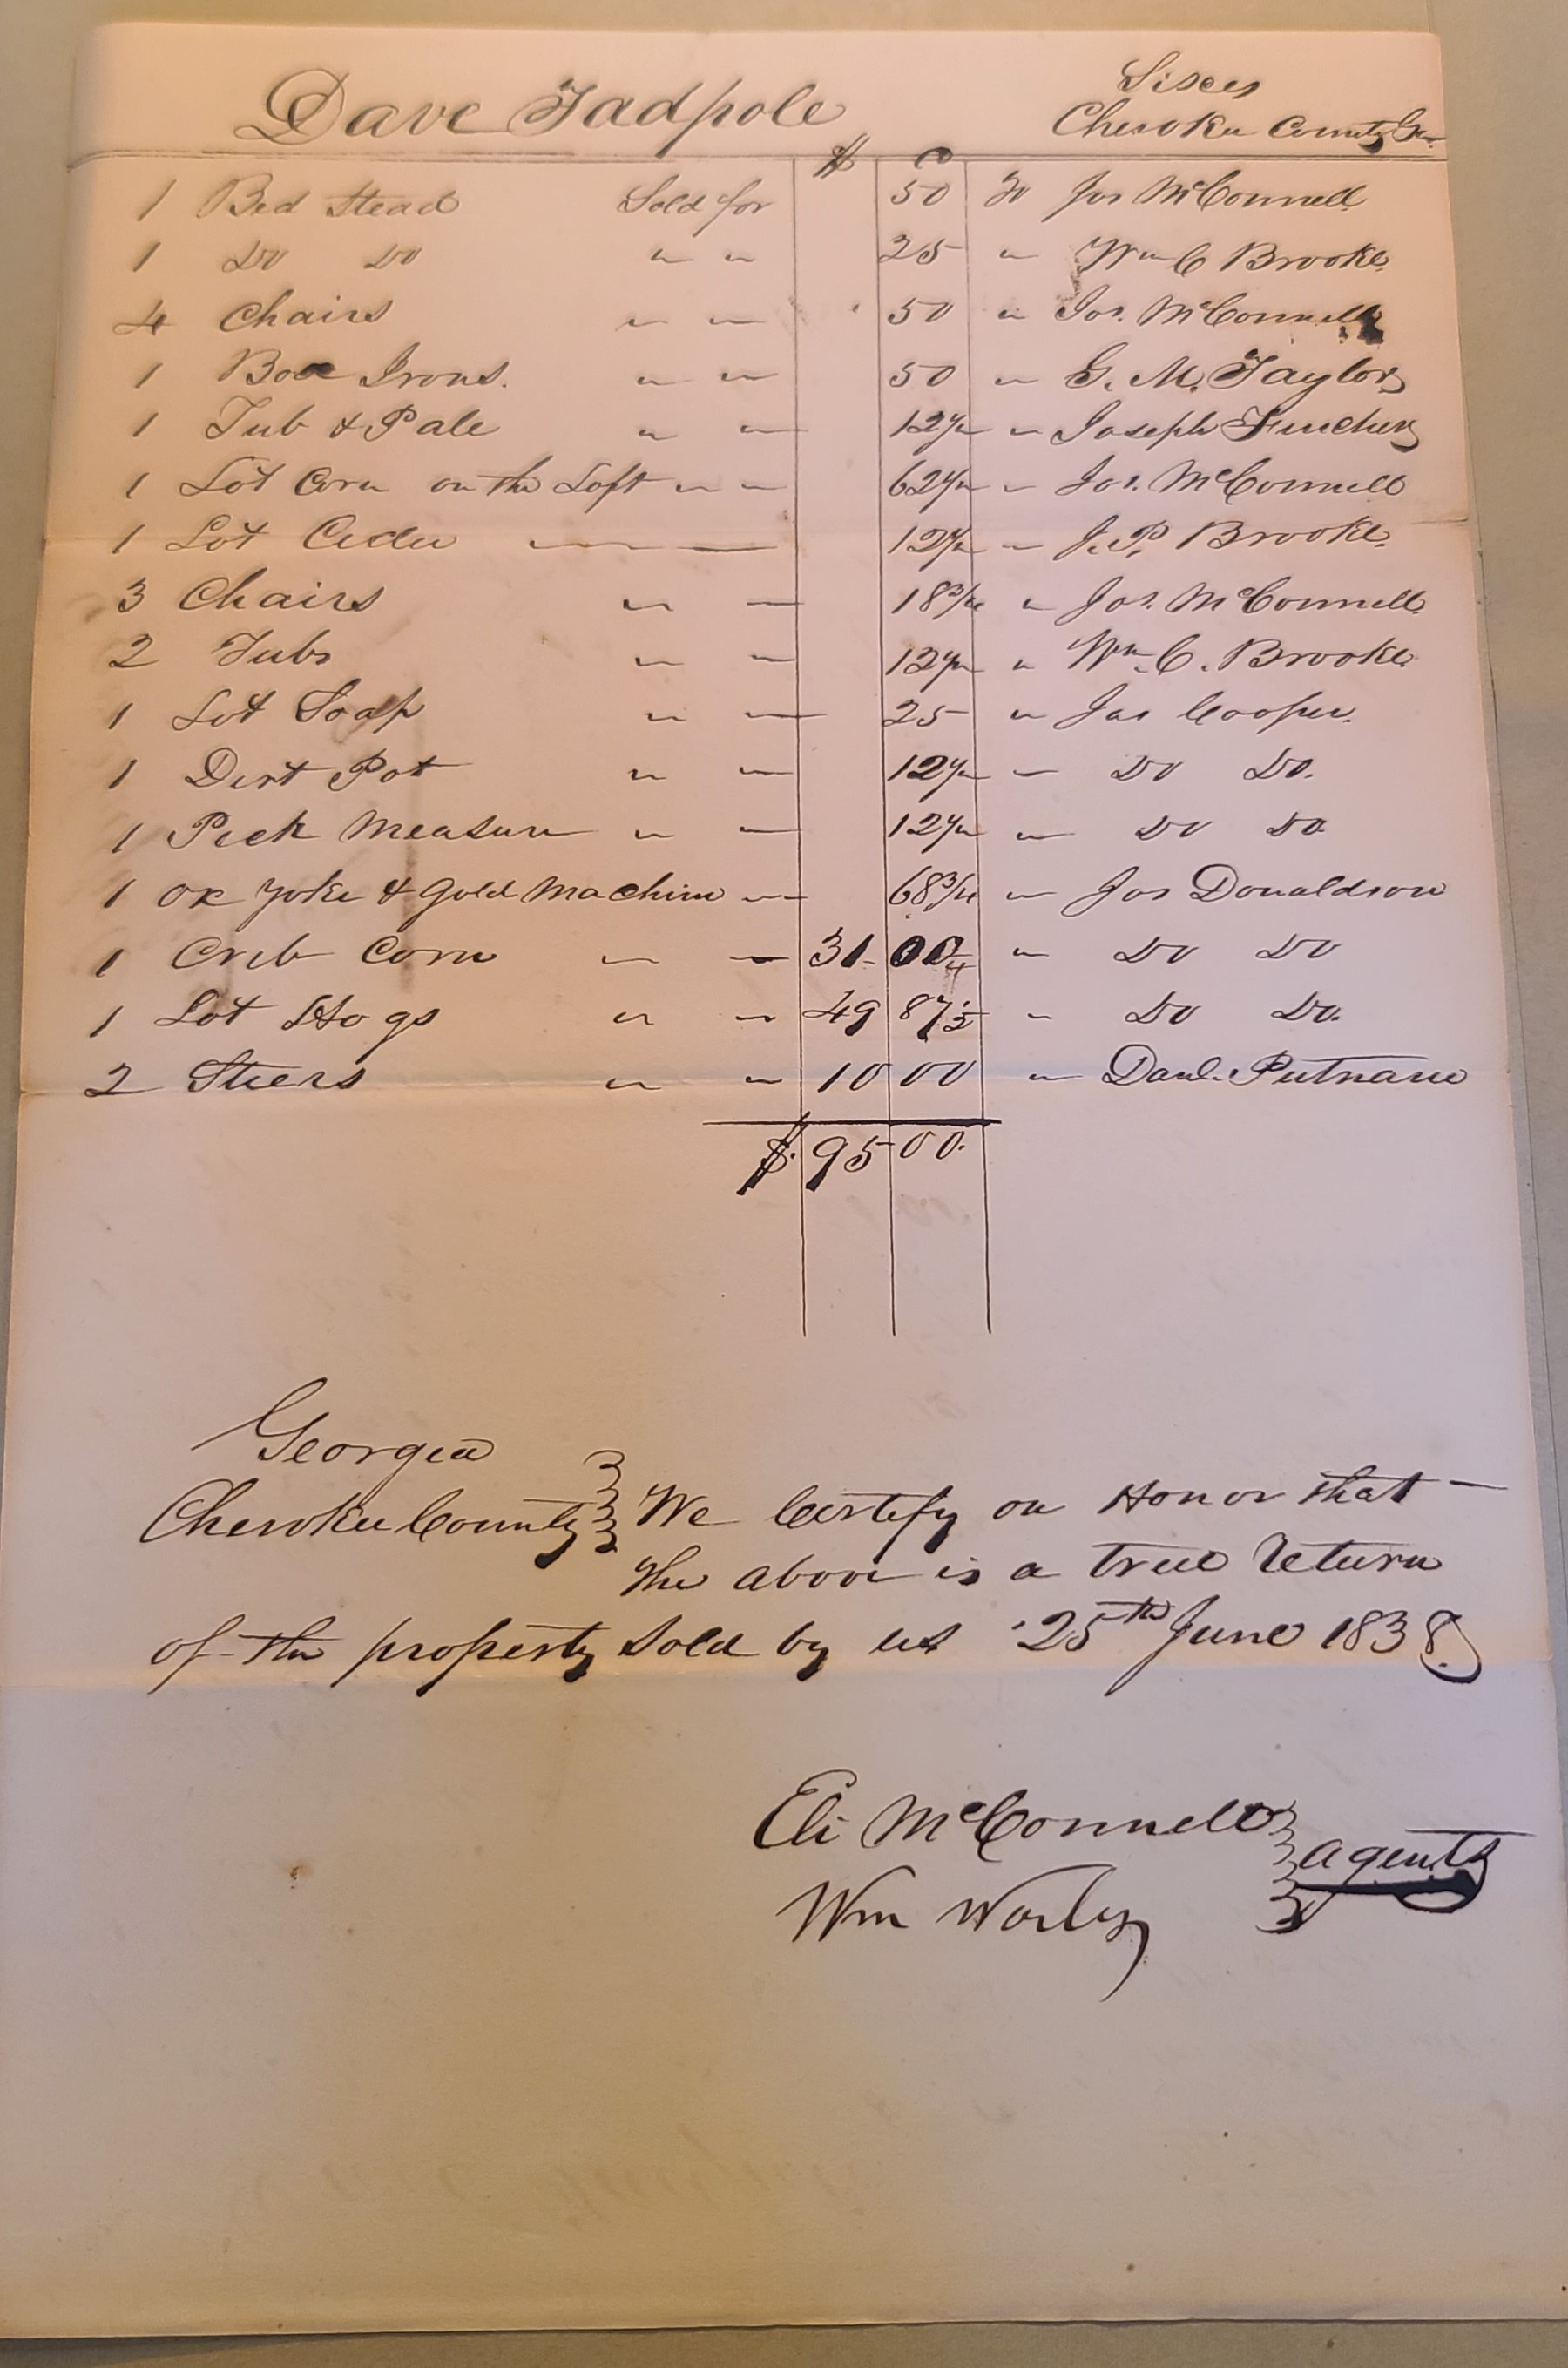 Dave Tadpole
Sixes
Cherokee County Ga
$ C
1 Bed Stead Sold for 50 To Jos McConnell
1 Do Do " " 25 " Wm C Brooke
4 Chairs " " 50 " Jos. McConnell
1 Box Irons. " " 50 " G. M. Taylor
1 Tub & Pale " " 12 1/2 " Joseph Fincher
1 Lot Corn on the Loft " " 62 1/2 " Jos. McConnell
1 Lot 12 1/2 " J. P. Brooke.
3 Chairs " " 18 3/4 " Jos. McConnell
2 Tubs " " 12 1/2 " Wm. C. Brooke
1 Lot Soap " " 25 " Jas Cooper.
1 Dirt Pot " " 12 1/2 " Do Do.
1 Peck Measure " " 12 1/2 " Do Do
1 Ox Yoke & Gold Machine " " 68 3/4 " Jos Donaldson
1 Crib Corn " " 31 00 " Do Do
1 Lot Hogs " " 49 87 1/2 " Do Do.
2 Steers " " 10 00 " Danl. Putnam
$. 95 00.
Georgia
Cherokee County We Certify on Honor that
the above is a true return
of the property sold by us 25th June 1838.
Eli McConnell
Agents
Wm Worley